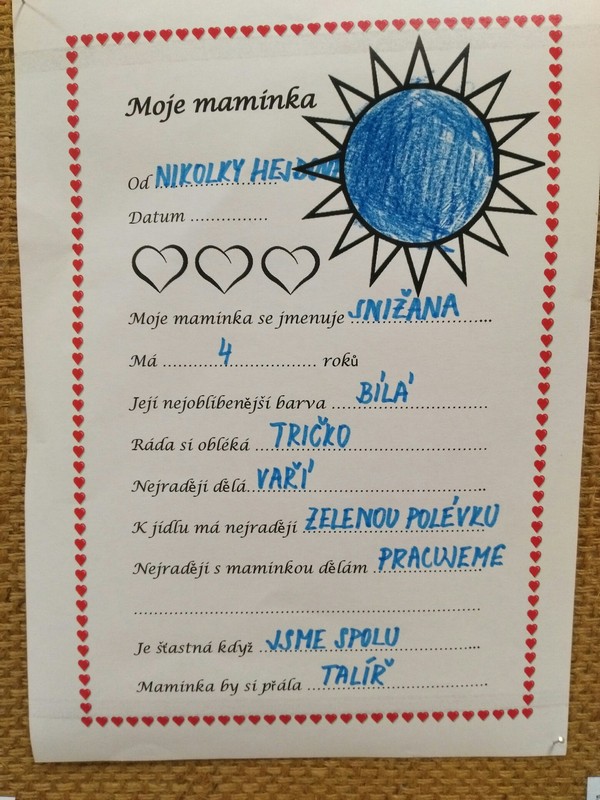 Moje maminka
Od NIKOLKY
Datum ...............
Moje maminka se jmenuje SNIŽANA
Má 4 roků
Její nejoblíbenější barva BÍLÁ
Ráda si obléká TRIČKO
Nejraději dělá VAŘÍ
K jídlu má nejraději ZELENOU POLÉVKU
Nejraději s maminkou dělám PRACUJEME
Je šťastná když JSME SPOLU
Maminka by si přála TALÍŘ